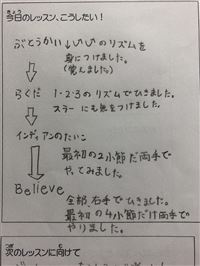 今日のレッスン、こうしたい!
ぶとうかい↓ のリズムを
身につけました。
(覚えました)
らくだ 1・2・3のリズムでひきました。
スラーにも気をつけました。
インディアンのたいこ
最初の2小節だけ両手で
やってみました。
Believe
全部右手でひきました。
最初の4小節だけ両手で
やりました。
次のレッスンに向けて